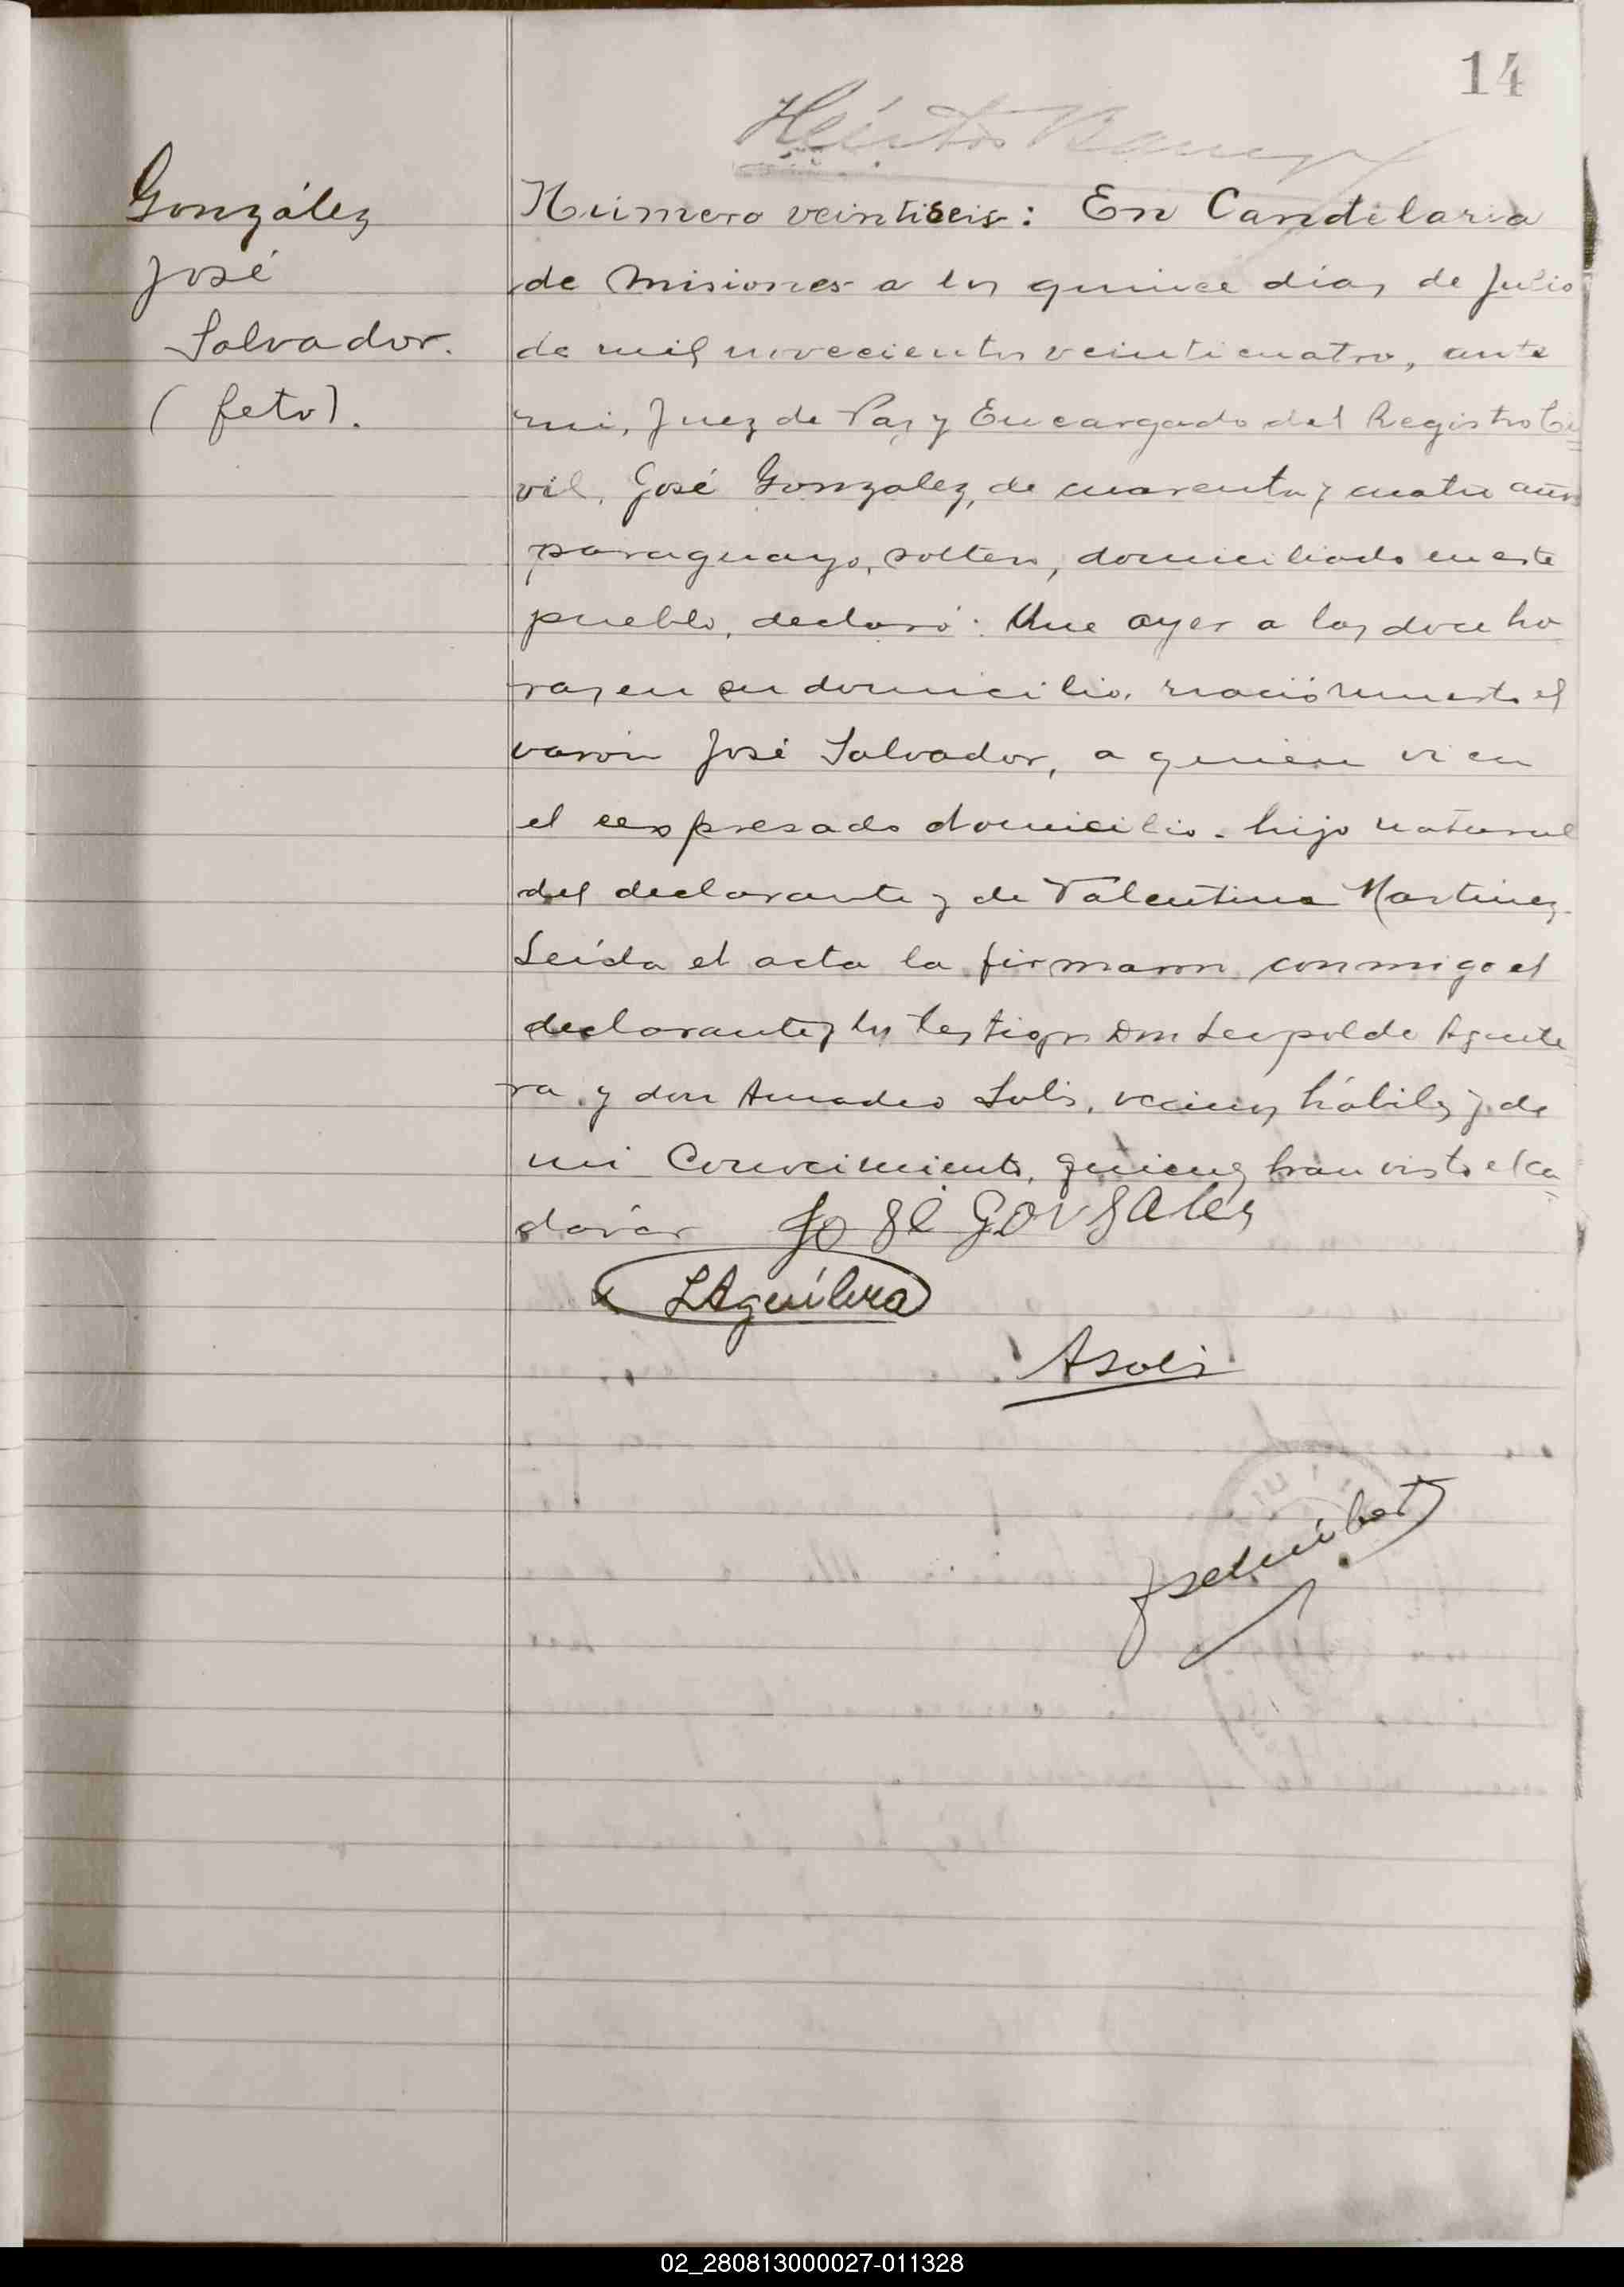 14
González
José
Salvador.
(feto).
Número veintiseis: En Candelaria
de Misiones a los quince días de Julio
de mil novecientos veinticuatro, ante
mi, Juez de Paz y Encargado del Registro Ci
vil, José Gonzalez, de cuarenta y cuatro años
paraguayo, soltero, domiciliado en este
pueblo, declaró: Que ayer a las doce ho
ras, en su domicilio, nació muerto el
varón José Salvador, a quien vi en
el expresado domicilio, hijo natural
del declarante y de Valentina Martinez.
Leída el acta la firmaron conmigo el
declarante y los testigos Don Leopoldo Aguile
ra y don Amadeo Solis, vecinos hábiles y de
mi conocimiento, quienes han visto el ca
dáver José Gonsales
LAguilera
ASolis
02_280813000027-011328